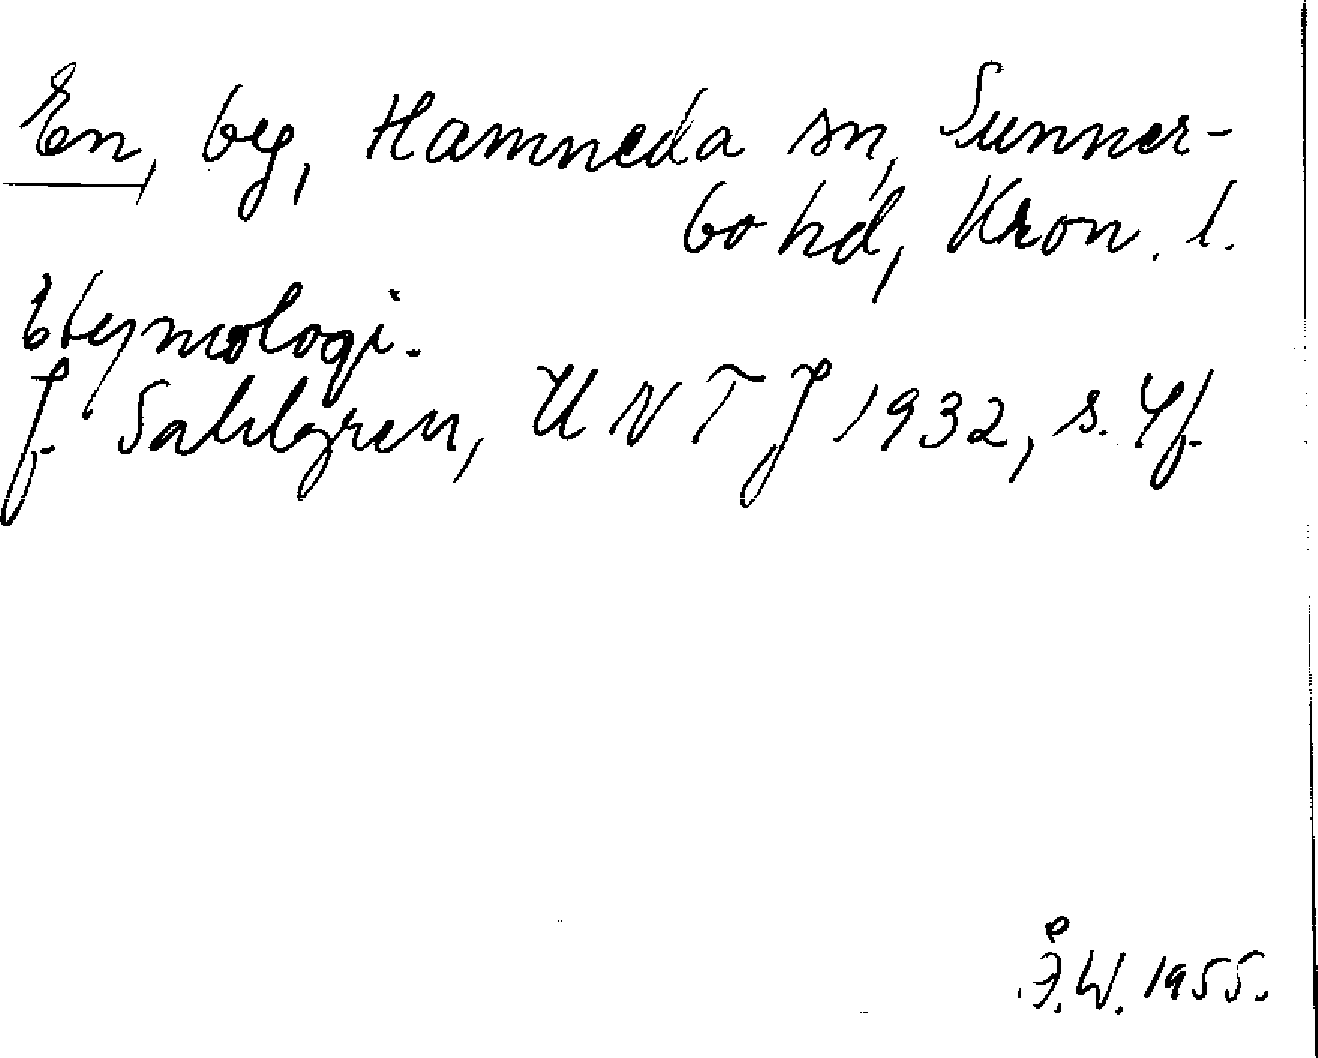 En, bg, Hamneda sn, Sunner-
bo hd, Kron. l.
Etymologi.
J. Sahlgren, UNTJ 1932, s. 4f.
Å.W. 1955.